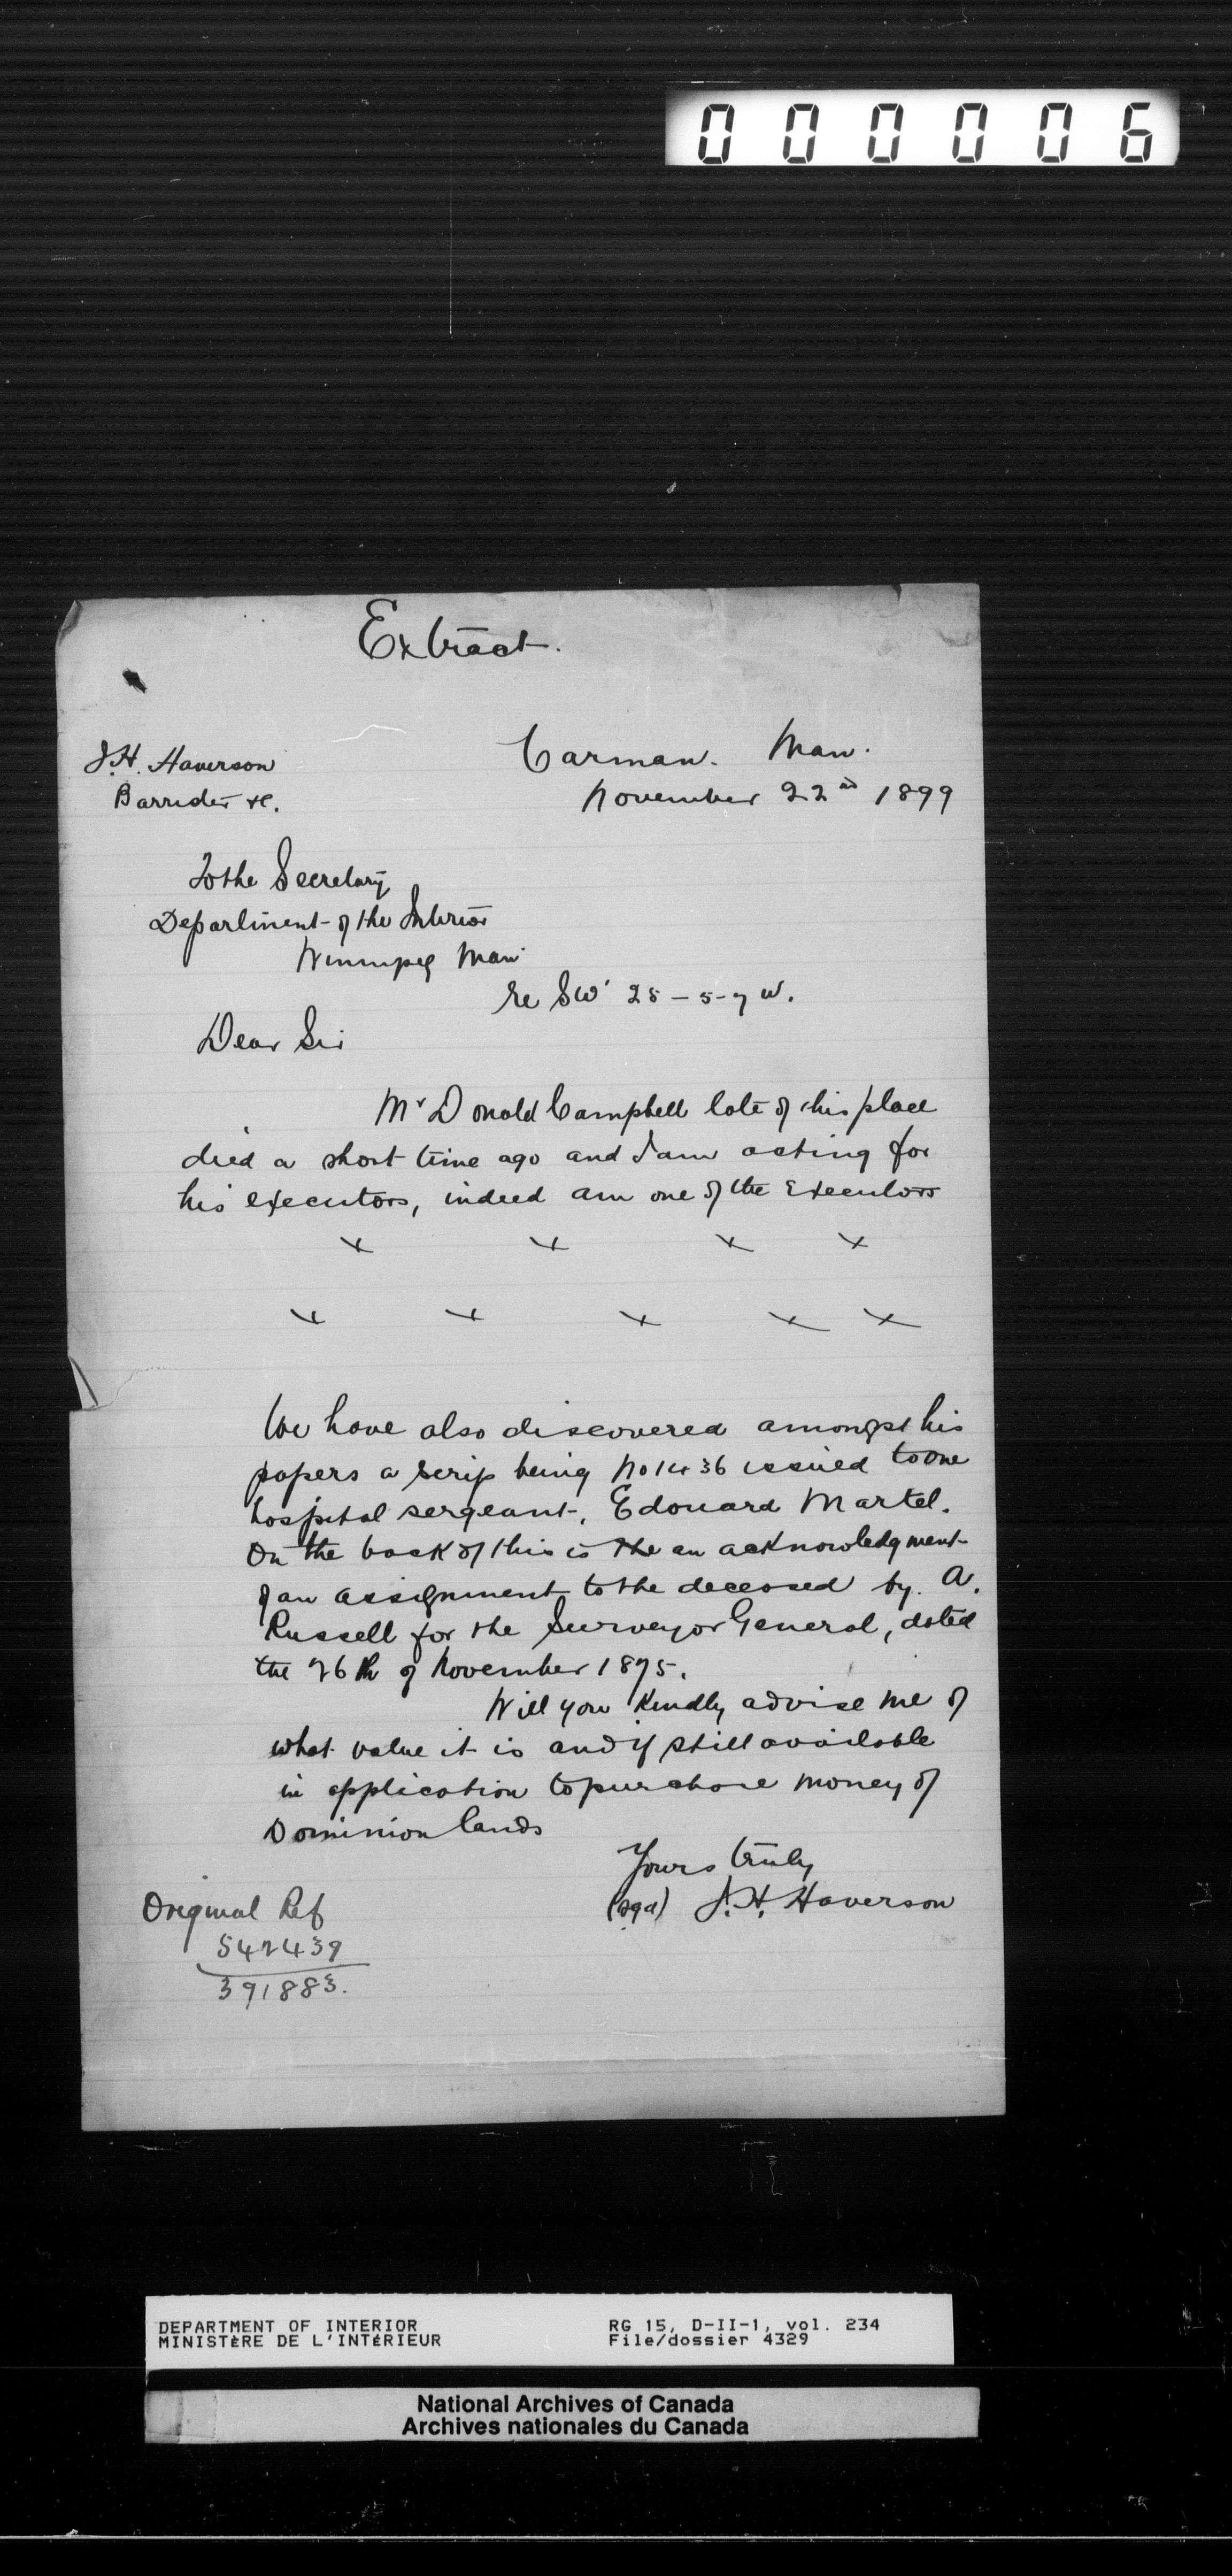 000006
Extract.
J.H. Haverson
Barrister &c.
Carman. Man.
November 22nd 1899
To the Secretary
Department of the Interior
Winnipeg Man
Re SW 25-5-7 W.
Dear Sir
Mr Donald Campbell late of this place
died a short time ago and I am acting for
his executors, indeed am one of the Executors
x x x x
x x x x x
We have also discovered amongst his
papers a scrip being No 1436 issued to one
hospital sergeant, Edouard Martel.
On the back of this is the an acknowledgment
of an assignment to the deceased by A.
Russell for the Surveyor General, dated
the 26th of November 1875.
Will you kindly advise me of
what value it is and if still available
in application to purchase money of
Dominion lands
Yours truly
(sgd) J.H. Haverson
Original Ref
542439
391883.
DEPARTMENT OF INTERIOR
MINISTÈRE DE L'INTÉRIEUR
RG 15, D-II-1, vol. 234
File/dossier 4329
National Archives of Canada
Archives nationales du Canada